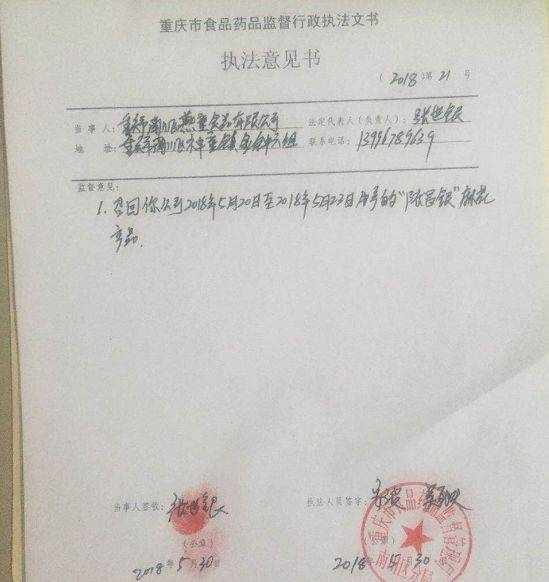 重庆市食品药品监督行政执法文书
执法意见书
（2018）第21号
当事人：重庆市南川区 食品有限公司 法定代表人（负责人）：张世银
地 址：重庆市南川区木 镇 组 联系电话：13996789639
监督意见：
1. 召回你公司2018年5月20日至2018年5月23日生产的“陈昌银”麻花
产品.
当事人签收：张世银 执法人员签字：
（公章） （公章）
2018年5月30 2018年5月30